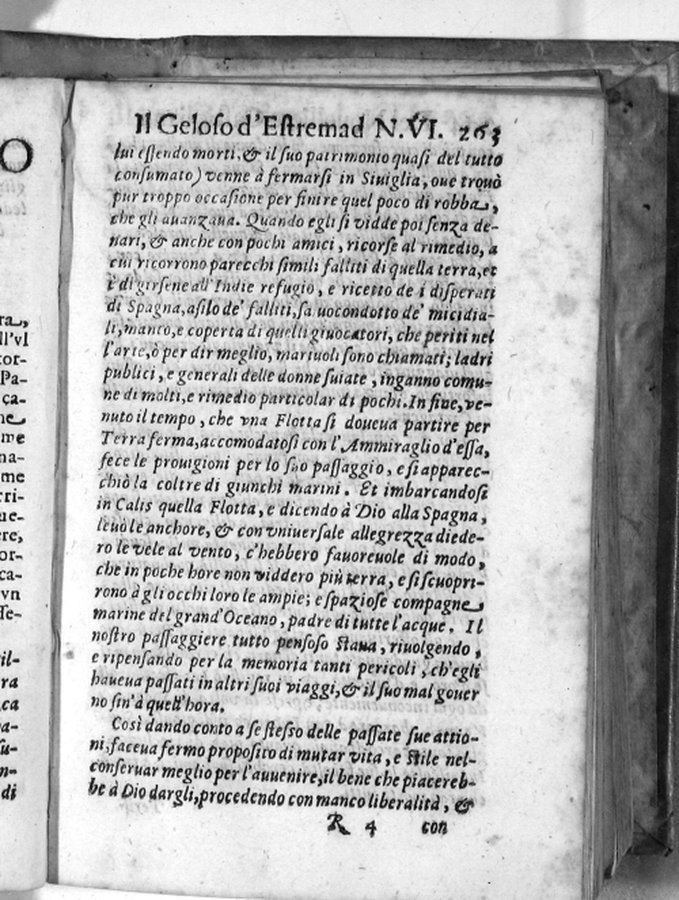 O
ra,
ll'vI
tor-
Pa-
ça-
ne
me
na-
me
rri-
ue-
ere,
or-
ca-
vn
sse-
il-
ra
ca
a-
su-
n-
di
Il Geloſo d'Eſtremad N.VI. 263
lui eſſendo morti, & il ſuo patrimonio quaſi del tutto
conſumato) venne à fermarſi in Siuiglia, oue trouò
pur troppo occaſione per finire quel poco di robba,
che gli auanzaua. Quando egli ſi vidde poi ſenza de-
nari, & anche con pochi amici, ricorſe al rimedio, a
cui ricorrono parecchi ſimili falliti di quella terra, et
è di girſene all'Indie refugio, e ricetto de i diſperati
di Spagna, aſilo de' falliti, ſa uocondotto de' micidia-
li, manto, e coperta di quelli giuocatori, che periti nel
l'arte, ò per dir meglio, mariuoli ſono chiamati; ladri
publici, e generali delle donne ſuiate, inganno comu-
ne di molti, e rimedio particolar di pochi. In fine, ve-
nuto il tempo, che vna Flotta ſi doueua partire per
Terra ferma, accomodatoſi con l'Ammiraglio d'eſſa,
fece le prouigioni per lo ſuo paſſaggio, e ſi apparec-
chiò la coltre di giunchi marini. Et imbarcandoſi
in Calis quella Flotta, e dicendo à Dio alla Spagna,
leuò le anchore, & con vniuerſale allegrezza diede-
ro le vele al vento, c'hebbero fauoreuole di modo,
che in poche hore non viddero più terra, e ſi ſcuopri-
rono à gli occhi loro le ampie; e ſpazioſe compagne
marine del grand'Oceano, padre di tutte l'acque. Il
noſtro paſſaggiere tutto penſoſo ſtaua, riuolgendo,
e ripenſando per la memoria tanti pericoli, ch'egli
haueua paſſati in altri ſuoi viaggi, & il ſuo mal gouer
no ſin'à quell'hora.
Così dando conto a ſe ſteſſo delle paſſate ſue attio-
ni, faceua fermo propoſito di mutar vita, e ſtile nel-
conſeruar meglio per l'auuenire, il bene che piacereb-
be à Dio dargli, procedendo con manco liberalità, &
R 4 con